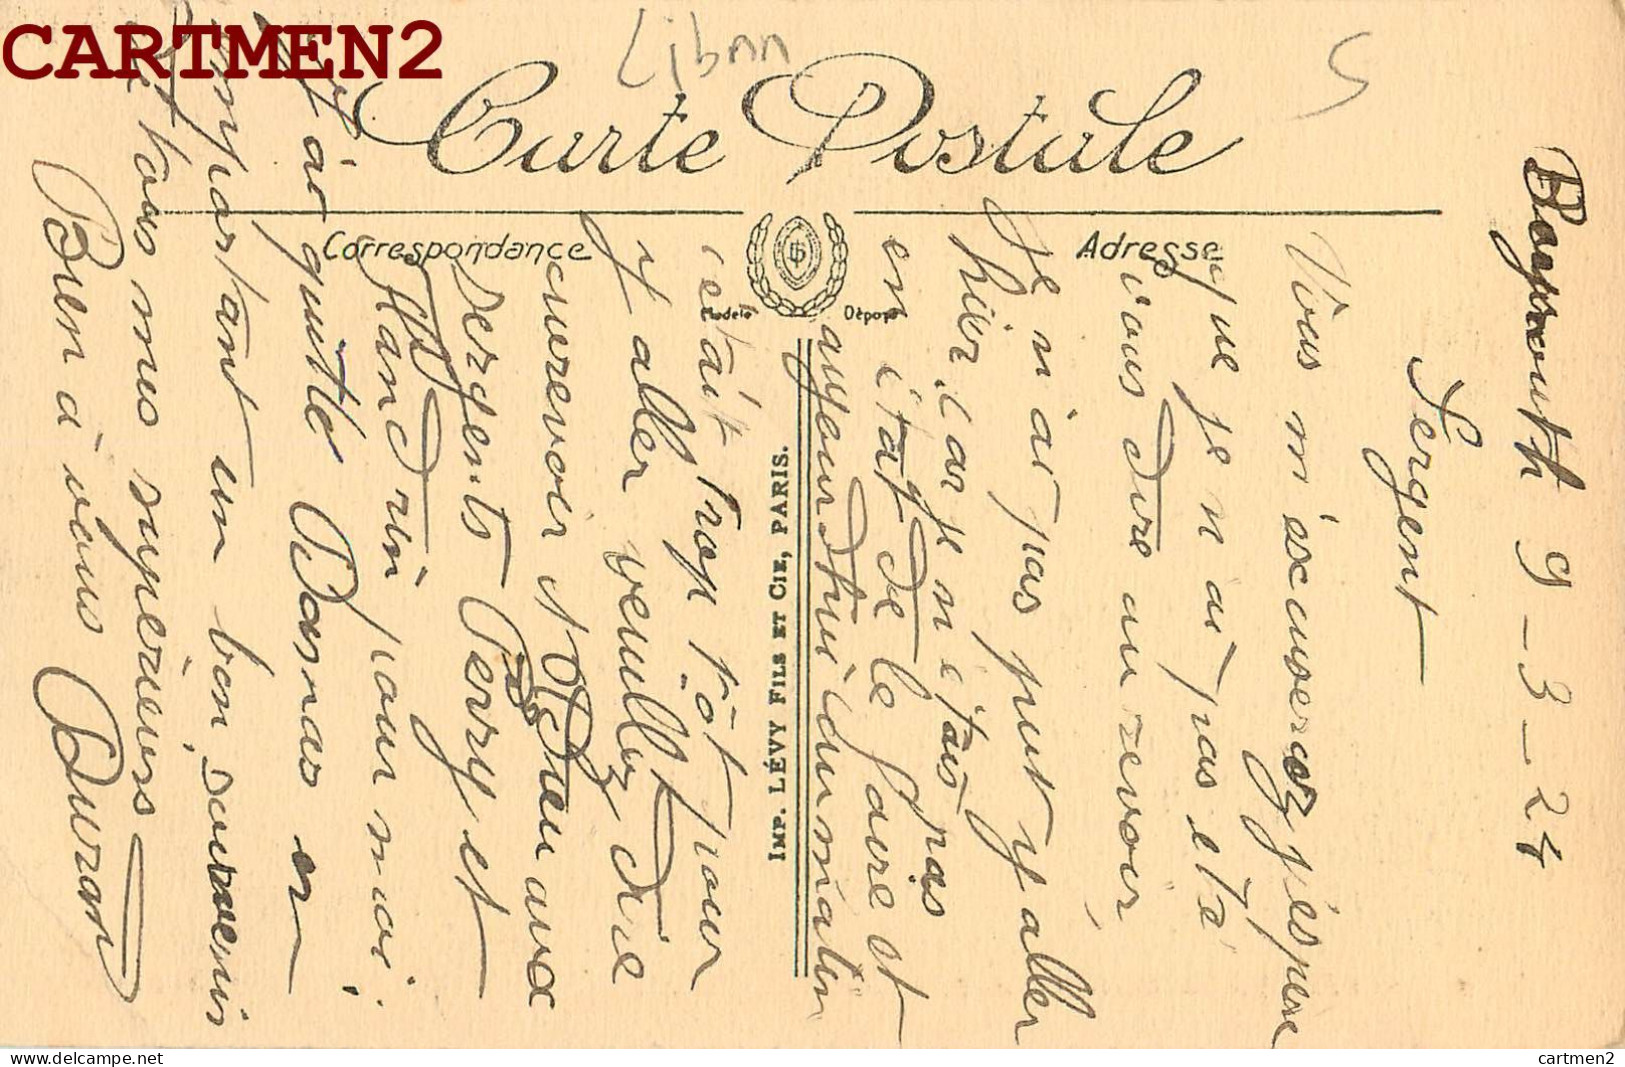 CARTMEN2
Liban
5
Carte Postale
Correspondance
Adresse
Modèle Déposé
IMP. LÉVY FILS ET CIE, PARIS.
Beyrouth 9-3-24
Sergent
Vous m'éscuserez j'éspère
que je n'ai pas été
vous dire au revoir
Je n'ai pas put y aller
hier, car je n'étais pas
en état de le faire et
aujourd'hui du matin
c'etait trop tôt pour
y aller veuillez dire
aurevoir aux
sergents Perry et
Handrin pour moi.
quitte Damas en
emportant un bon souvenir
de tous mes superieurs
Bien à vous Durand
cartmen2